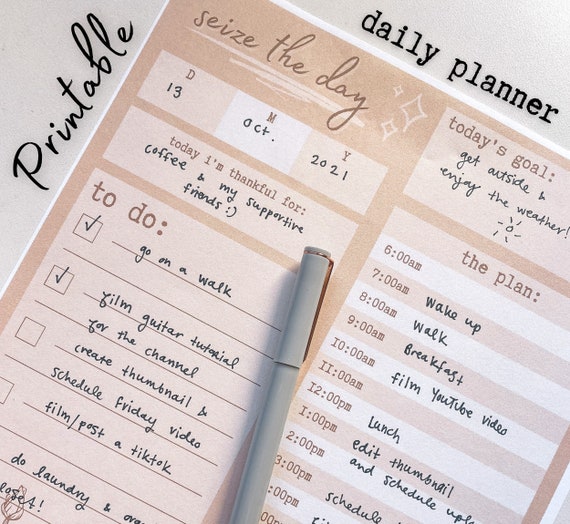 Printable
daily planner
seize the day
D
13
M
oct.
Y
2021
today i'm thankful for:
coffee & my supportive
friends :)
today's goal:
get outside &
enjoy the weather!
to do:
go on a walk
film guitar tutorial
for the channel
create thumbnail &
schedule friday video
film/post a tiktok
do laundry &
the plan:
6:00am
7:00am wake up
8:00am walk
9:00am Breakfast
10:00am film YouTube video
11:00am
12:00pm Lunch
1:00pm edit thumbnail
2:00pm and schedule
3:00pm
:00pm schedule
:00pm